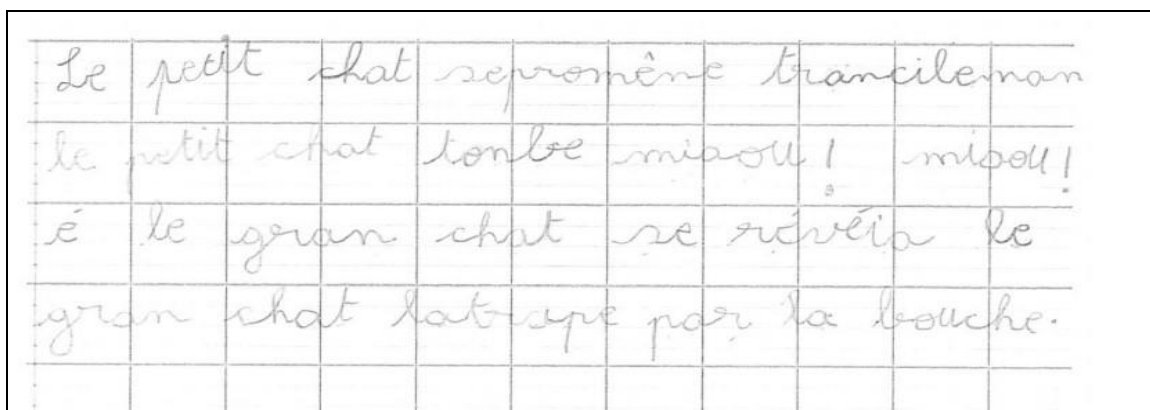 Le petit chat sepromène trancileman
le petit chat tonbe miaou! miaou!
é le gran chat se révéia le
gran chat latrape par la bouche.